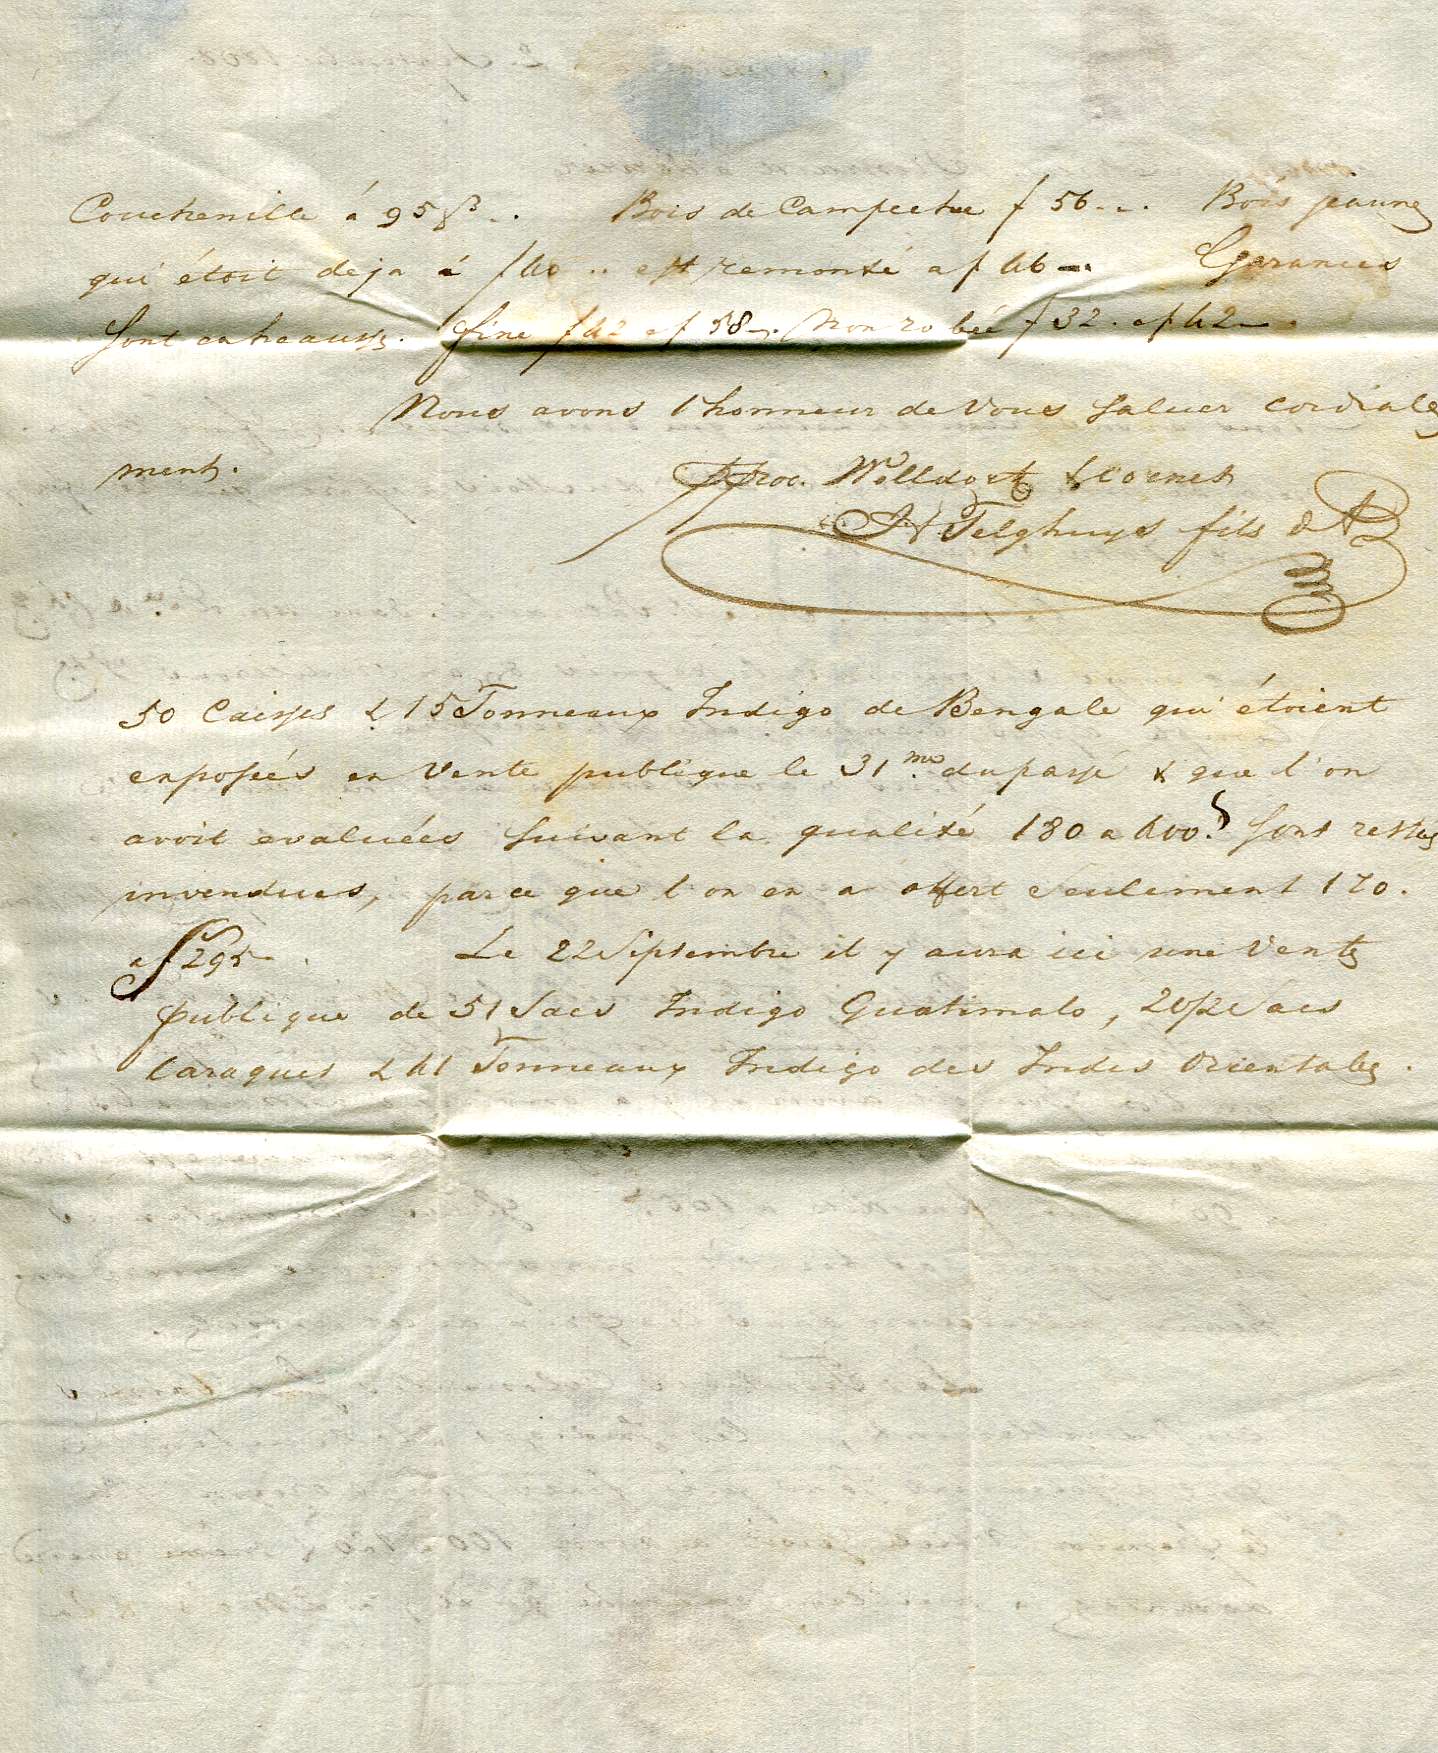 Couchenille á 95 ß... Bois de Campeche f 56... Bois jaune
qui étoit deja á f 40 .. est remonté a f 46 —. Garances
Sont en hausse. fine f 42 a f 58 —. Non robée f 32. a f 42 —.
Nous avons l'honneur de Vous Saluer cordiale
ment.
pproc. & Cornet
Telghuys fils
50 Caisses & 15 Tonneaux Indigo de Bengale qui étoient
exposées en Vente publique le 31.me du passé & que l'on
avoit evaluées Suivant la qualité 180 a 400.s Sont restés
invendues, parce que l'on en a offert seulement 170.
a 295 —.  Le 22 Septembre il y aura ici une Vente
publique de 51 Sacs Indigo Guatimalo, Sacs
Caraques & 41 Tonneaux Indigo des Indes Orientales.